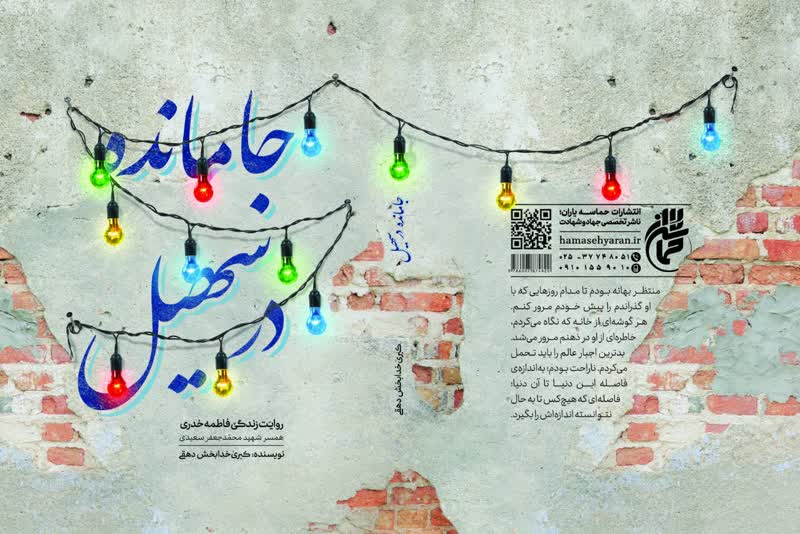 جامانده
در سهیل
روایت زندگی فاطمه خدری
همسر شهید محمدجعفر سعیدی
نویسنده: کبری خدابخش دهقی
جامانده در سهیل
کبری خدابخش دهقی
انتشارات حماسه یاران؛
ناشر تخصصی جهاد و شهادت
hamasehyaran.ir
۰۲۵ ۰۳۷ ۷۴ ۸۰ ۵۱
۰۹۱۰ ۱۵۵ ۹۰ ۱۰
منتظر بهانه بودم تا مدام روزهایی که با
او گذراندم را پیش خودم مرور کنم.
هر گوشه‌ای از خانه که نگاه می‌کردم،
خاطره‌ای از او در ذهنم مرور می‌شد.
بدترین اجبار عالم را باید تحمل
می‌کردم. ناراحت بودم؛ به‌اندازه‌ی
فاصله این دنیا تا آن دنیا؛
فاصله‌ای که هیچ‌کس تا به حال
نتوانسته اندازه‌اش را بگیرد.